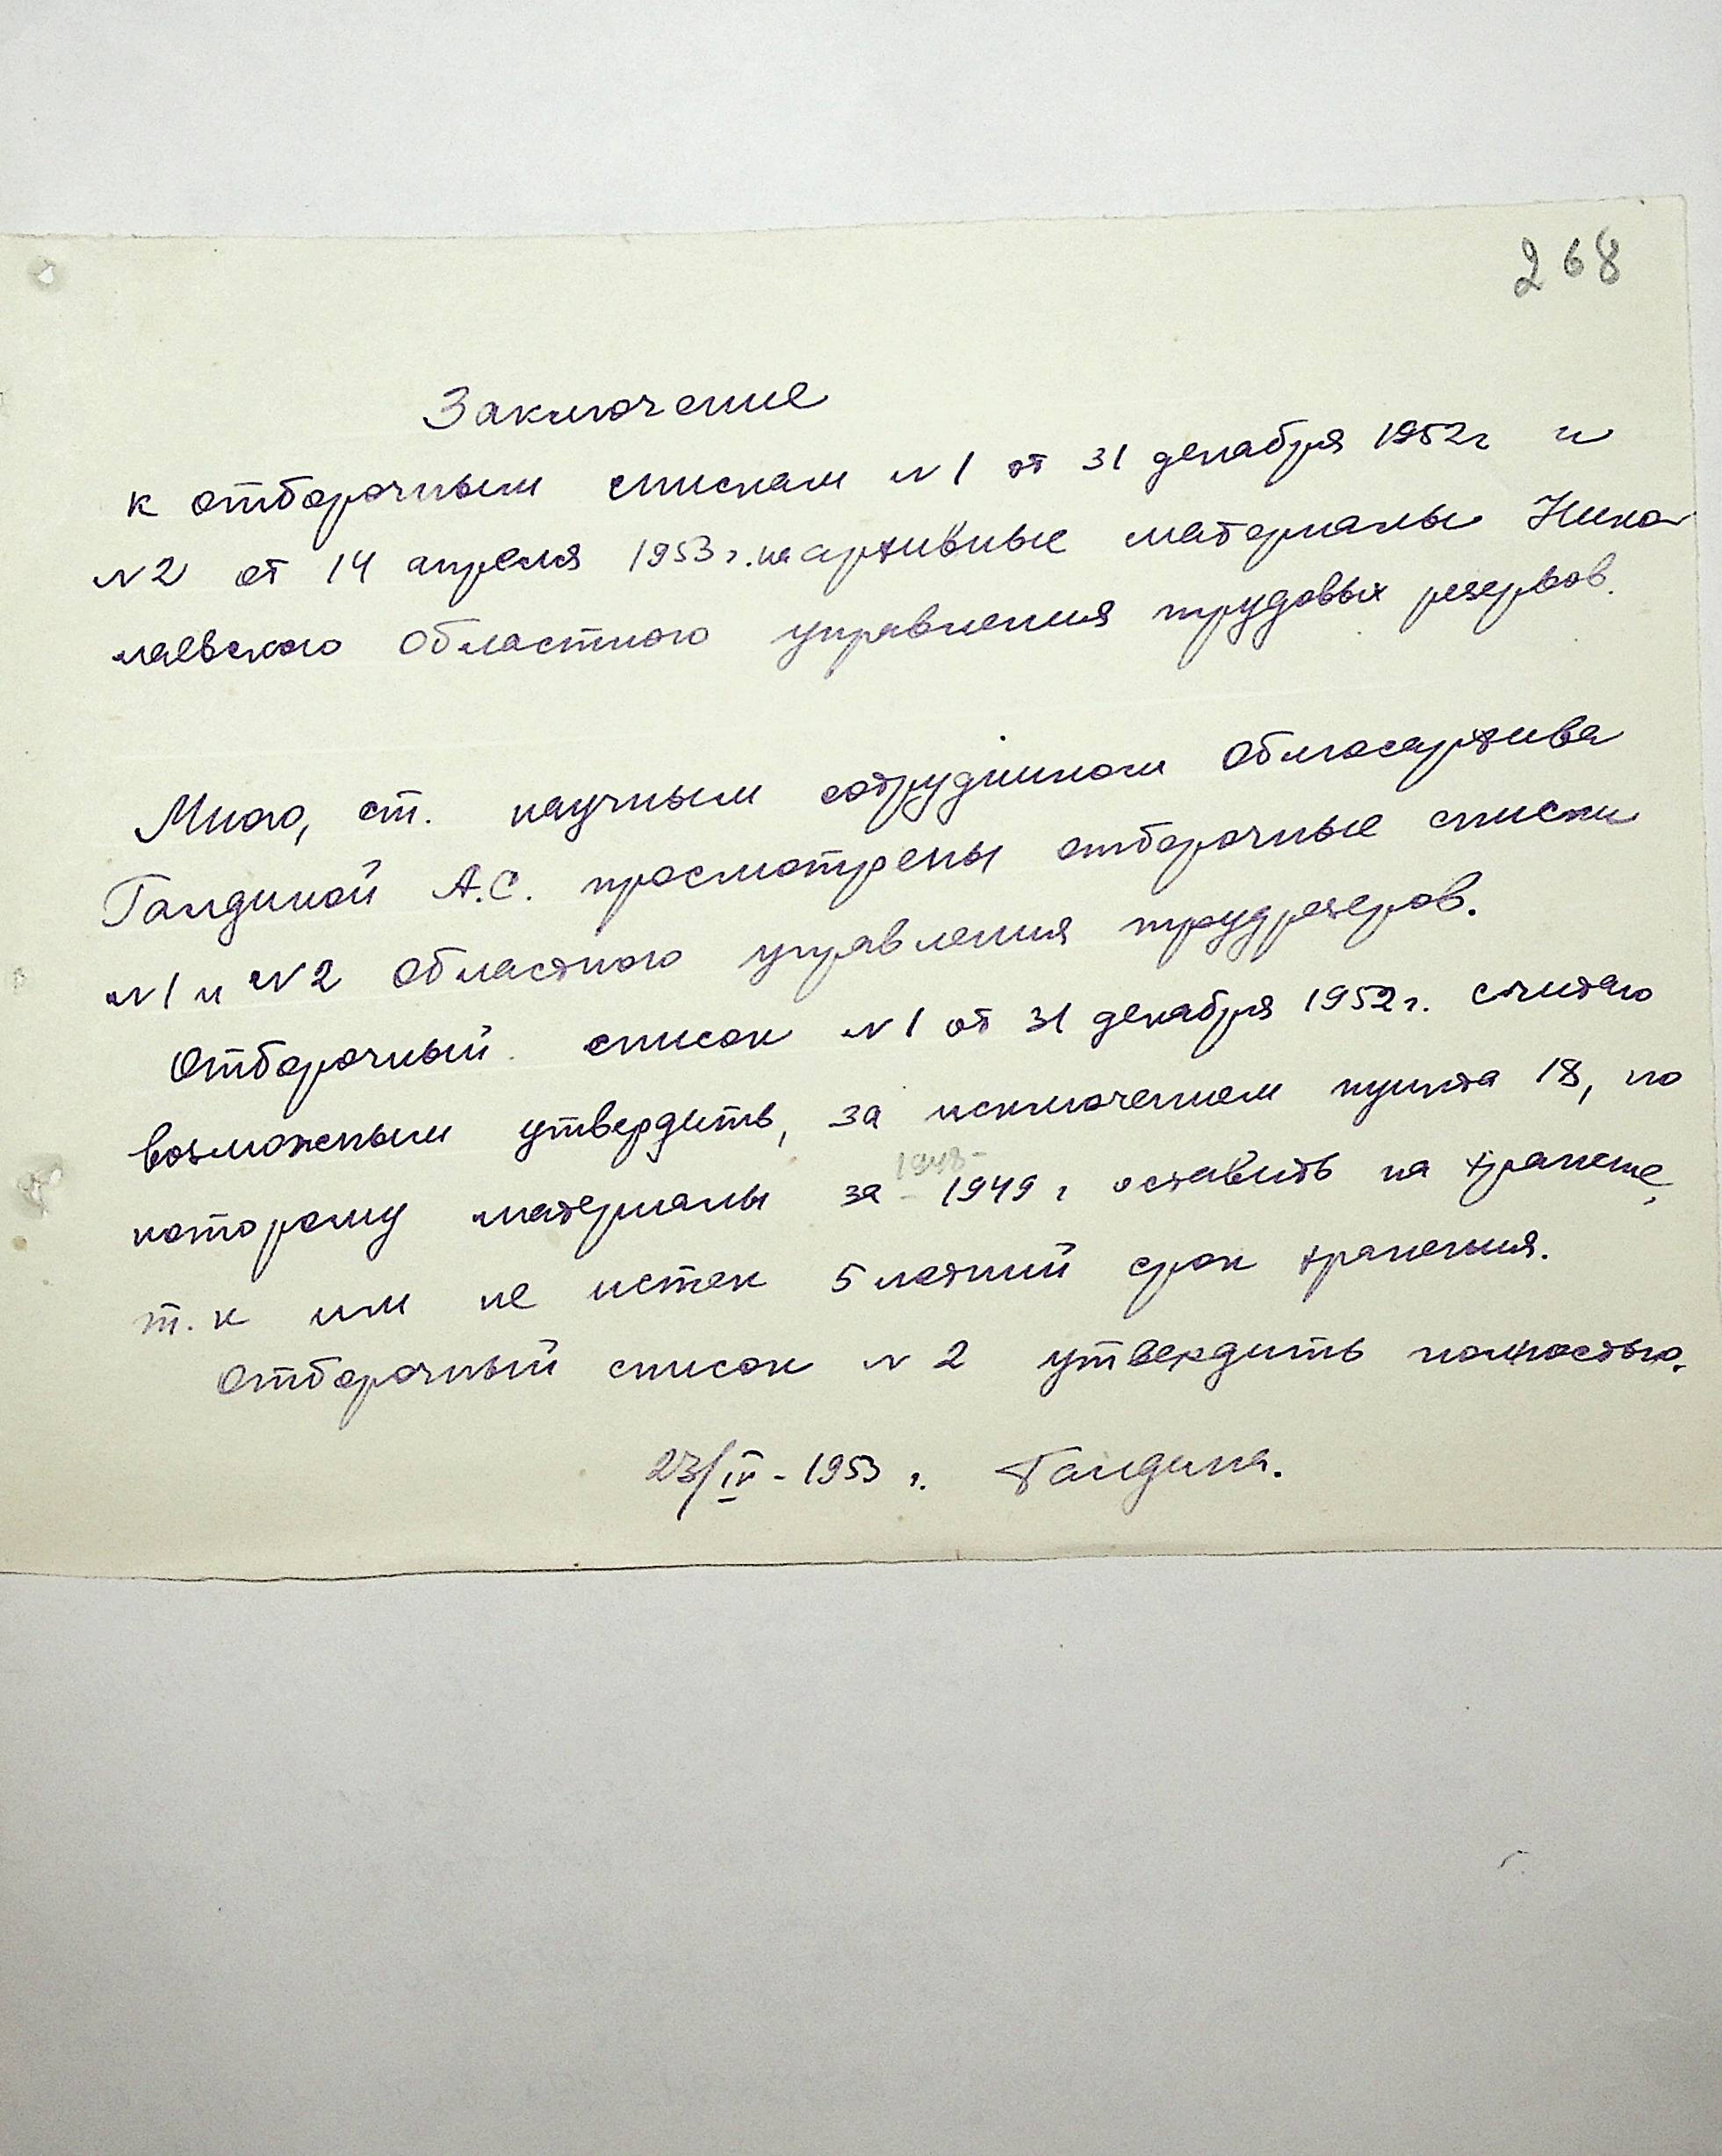 268
Заключение
к отборочным спискам №1 от 31 декабря 1952г и
№2 от 14 апреля 1953г. на архивные материалы Нико-
лаевского Областного управления трудовых резервов.
Мною, ст. научным сотрудником Облгосархива
Гандиной А.С. просмотрены отборочные списки
№1 и №2 Областного управления трудрезеров.
Отборочный список №1 от 31 декабря 1952г. считаю
возможным утвердить, за исключением пункта 18, по
1948-
которому материалы за 1949 г оставить на хранение,
т.к им не истек 5 летний срок хранения.
Отборочный список №2 утвердить полностью.
23/IV-1953 г. Гандина.